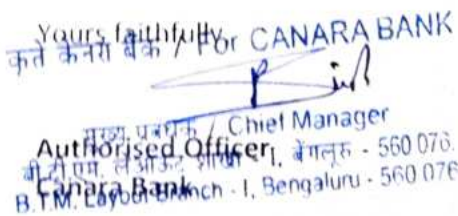 Yours faithfully,
कृते केनरा बैंक / For CANARA BANK
मुख्य प्रबंधक / Chief Manager
Authorised Officer
बी.टी.एम. लेआउट शाखा - I, बेंगलूरु - 560 076.
Canara Bank
B.T.M. Layout Branch - I, Bengaluru - 560 076